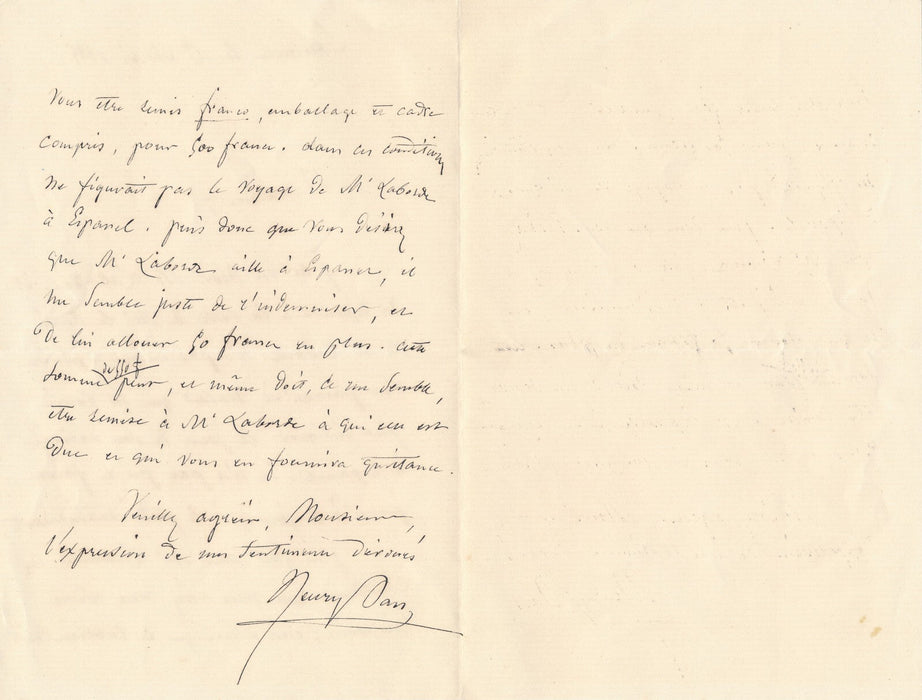 vous être remis franco, emballage et cadre
compris, pour 500 francs. dans ces conditions
ne figurait pas le voyage de Mr Laborde
à . puis donc que vous désirez
que Mr Laborde aille à , il
me semble juste de l'indemniser, et
de lui allouer 50 francs en plus. cette
somme de 550 f peut, et même doit, ce me semble,
être remise à Mr Laborde à qui elle est
due et qui vous en fournira quittance.
Veuillez agréer, Monsieur,
l'expression de mes sentiments dévoués
Henry